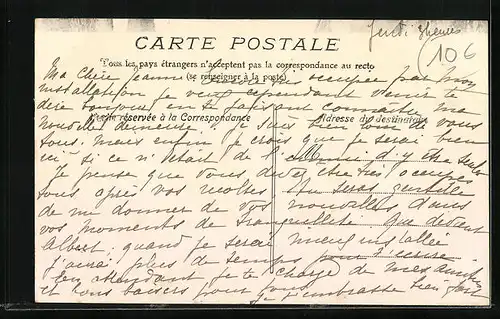 Jeudi 3 heures
106
CARTE POSTALE
Tous les pays étrangers n'acceptent pas la correspondance au recto
(se renseigner à la poste)
Ma Chère Jeanne occupée par mon
installation je veux cependant venir te
dire bonjour en te faisant connaître ma
Partie réservée à la Correspondance
Adresse du destinataire
nouvelle demeure. je suis loin de vous
tous. mais enfin je crois que je serai bien
ici si ce n'était de l' d'y être seule
je pense que vous devez être très occupés
tous après vos récoltes tu seras gentille
de me donner de vos nouvelles dans
vos moments de tranquillité que devient
Albert. quand je serai mieux installée
j'aurai plus de temps pour t'écrire.
En attendant je te charge de mes amitiés
et bons baisers pour tous je t'embrasse bien fort